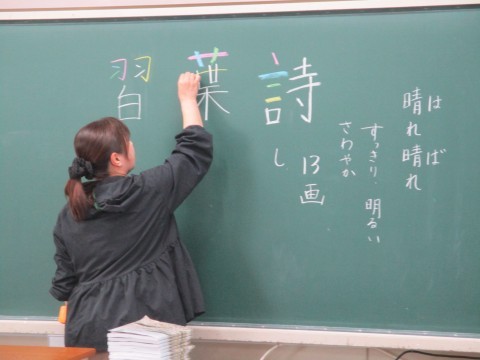 晴れ晴れ
は ば
すっきり、明るい
さわやか
詩
し 13画
葉
習